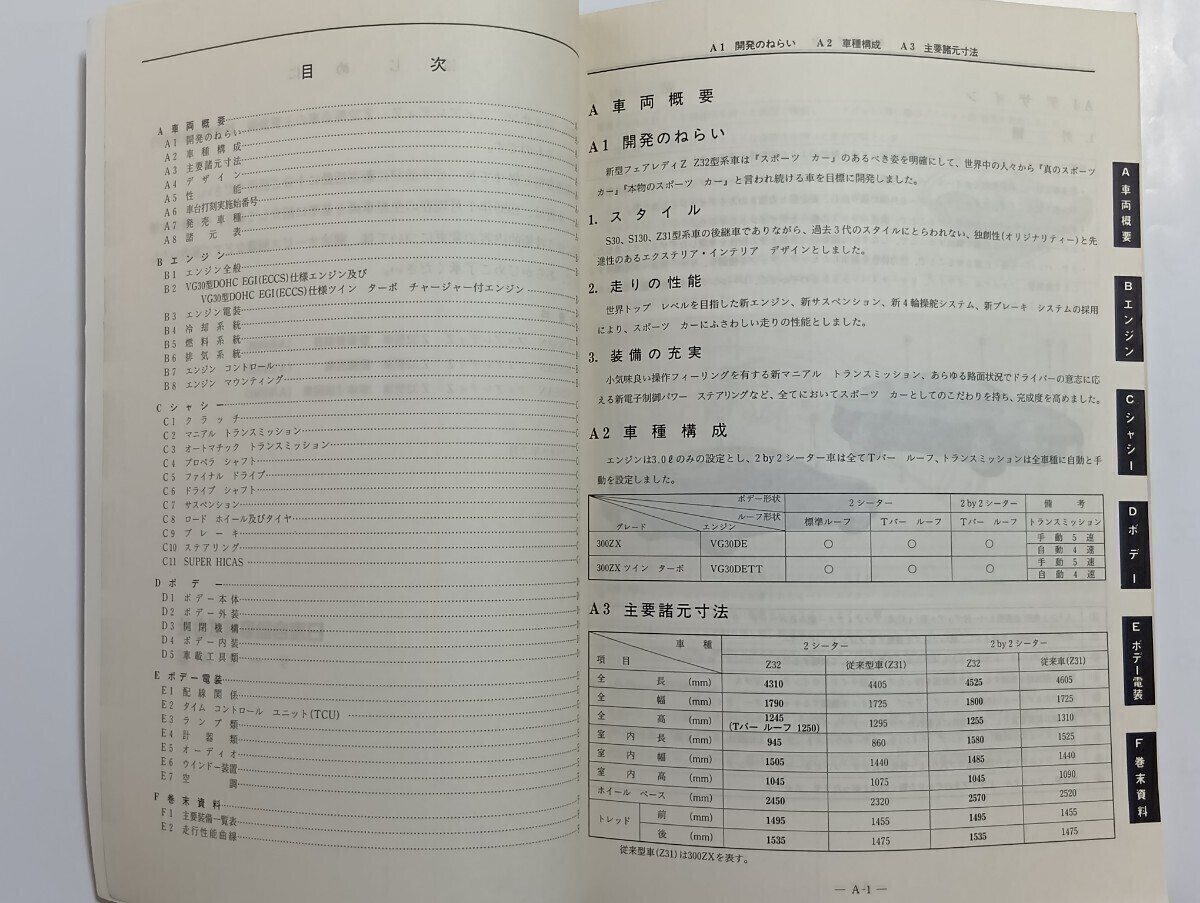 目次
A 車両概要
A1 開発のねらい
A2 車種構成
A3 主要諸元寸法
A4 デザイン
A5 性能
A6 車台打刻実施始番号
A7 発売車種
A8 諸元表
B エンジン
B1 エンジン全般
B2 VG30型DOHC EGI(ECCS)仕様エンジン及び
VG30型DOHC EGI(ECCS)仕様ツイン ターボ チャージャー付エンジン
B3 エンジン電装
B4 冷却系統
B5 燃料系統
B6 排気系統
B7 エンジン コントロール
B8 エンジン マウンティング
C シャシー
C1 クラッチ
C2 マニアル トランスミッション
C3 オートマチック トランスミッション
C4 プロペラ シャフト
C5 ファイナル ドライブ
C6 ドライブ シャフト
C7 サスペンション
C8 ロード ホイール及びタイヤ
C9 ブレーキ
C10 ステアリング
C11 SUPER HICAS
D ボデー
D1 ボデー本体
D2 ボデー外装
D3 開閉機構
D4 ボデー内装
D5 車載工具類
E ボデー電装
E1 配線関係
E2 タイム コントロール ユニット(TCU)
E3 ランプ類
E4 計器類
E5 オーディオ
E6 ウインドー装置
E7 空調
F 巻末資料
F1 主要装備一覧表
E2 走行性能曲線
A1 開発のねらい A2 車種構成 A3 主要諸元寸法
A 車両概要
A1 開発のねらい
新型フェアレディZ Z32型系車は『スポーツ カー』のあるべき姿を明確にして、世界中の人々から『真のスポーツ
カー』『本物のスポーツ カー』と言われ続ける車を目標に開発しました。
1. スタイル
S30、S130、Z31型系車の後継車でありながら、過去3代のスタイルにとらわれない、独創性(オリジナリティー)と先
進性のあるエクステリア・インテリア デザインとしました。
2. 走りの性能
世界トップ レベルを目指した新エンジン、新サスペンション、新4輪操舵システム、新ブレーキ システムの採用
により、スポーツ カーにふさわしい走りの性能としました。
3. 装備の充実
小気味良い操作フィーリングを有する新マニアル トランスミッション、あらゆる路面状況でドライバーの意志に応
える新電子制御パワー ステアリングなど、全てにおいてスポーツ カーとしてのこだわりを持ち、完成度を高めました。
A2 車種構成
エンジンは3.0ℓのみの設定とし、2by2シーター車は全てTバー ルーフ、トランスミッションは全車種に自動と手
動を設定しました。
ボデー形状 2シーター 2by2シーター 備考
ルーフ形状 標準ルーフ Tバー ルーフ Tバー ルーフ トランスミッション
グレード エンジン
300ZX VG30DE ○ ○ ○ 手動5速
自動4速
300ZXツイン ターボ VG30DETT ○ ○ ○ 手動5速
自動4速
A3 主要諸元寸法
車種 2シーター 2by2シーター
項目 Z32 従来型車(Z31) Z32 従来型車(Z31)
全長 (mm) 4310 4405 4525 4605
全幅 (mm) 1790 1725 1800 1725
全高 (mm) 1245 (Tバー ルーフ 1250) 1295 1255 1310
室内長 (mm) 945 860 1580 1525
室内幅 (mm) 1505 1440 1485 1440
室内高 (mm) 1045 1075 1045 1090
ホイール ベース (mm) 2450 2320 2570 2520
トレッド 前 (mm) 1495 1455 1495 1455
後 (mm) 1535 1475 1535 1475
従来型車(Z31)は300ZXを表す。
— A-1 —
A 車両概要
B エンジン
C シャシー
D ボデー
E ボデー電装
F 巻末資料